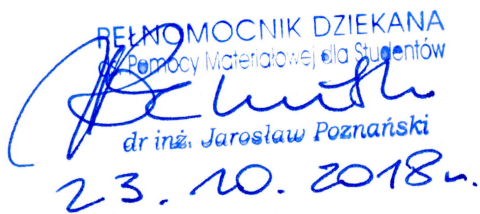 PEŁNOMOCNIK DZIEKANA
ds. Pomocy Materiałowej dla Studentów
dr inż. Jarosław Poznański
23. 10. 2018r.